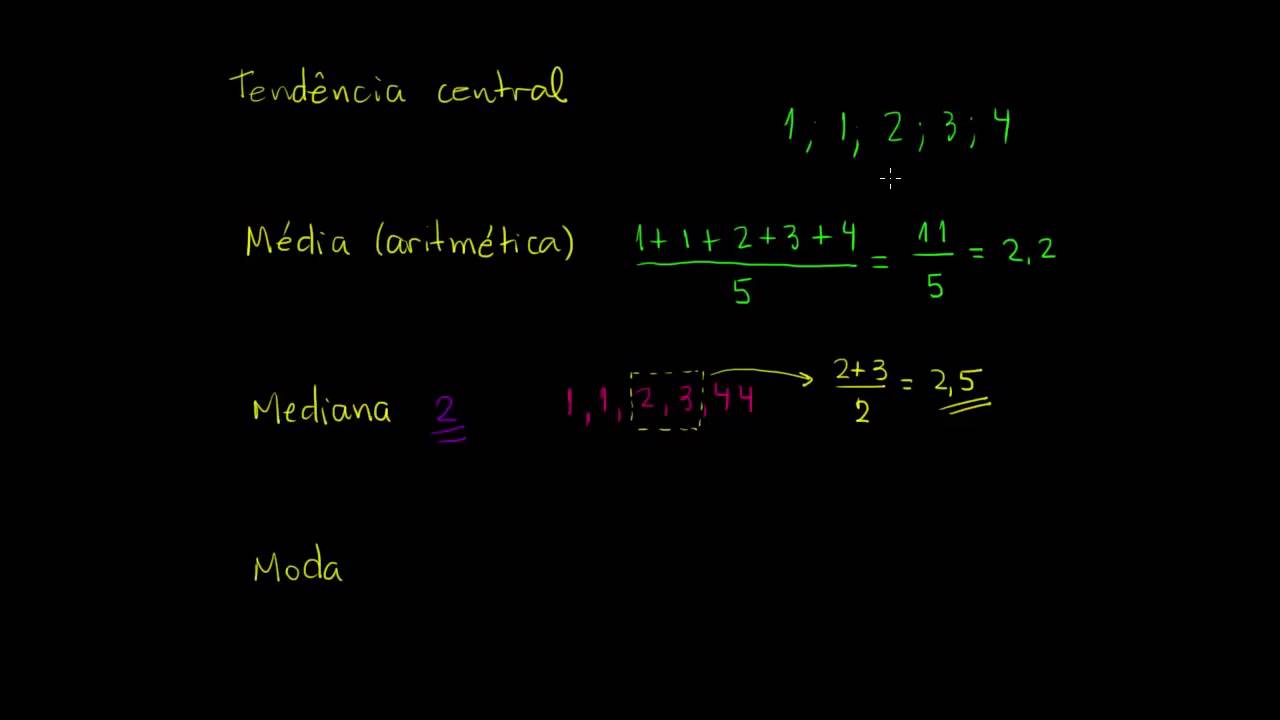 Tendência central
1; 1; 2; 3; 4
Média (aritmética) 1+1+2+3+4 / 5 = 11 / 5 = 2,2
Mediana 2 1, 1, 2, 3, 4 4 2+3 / 2 = 2,5
Moda